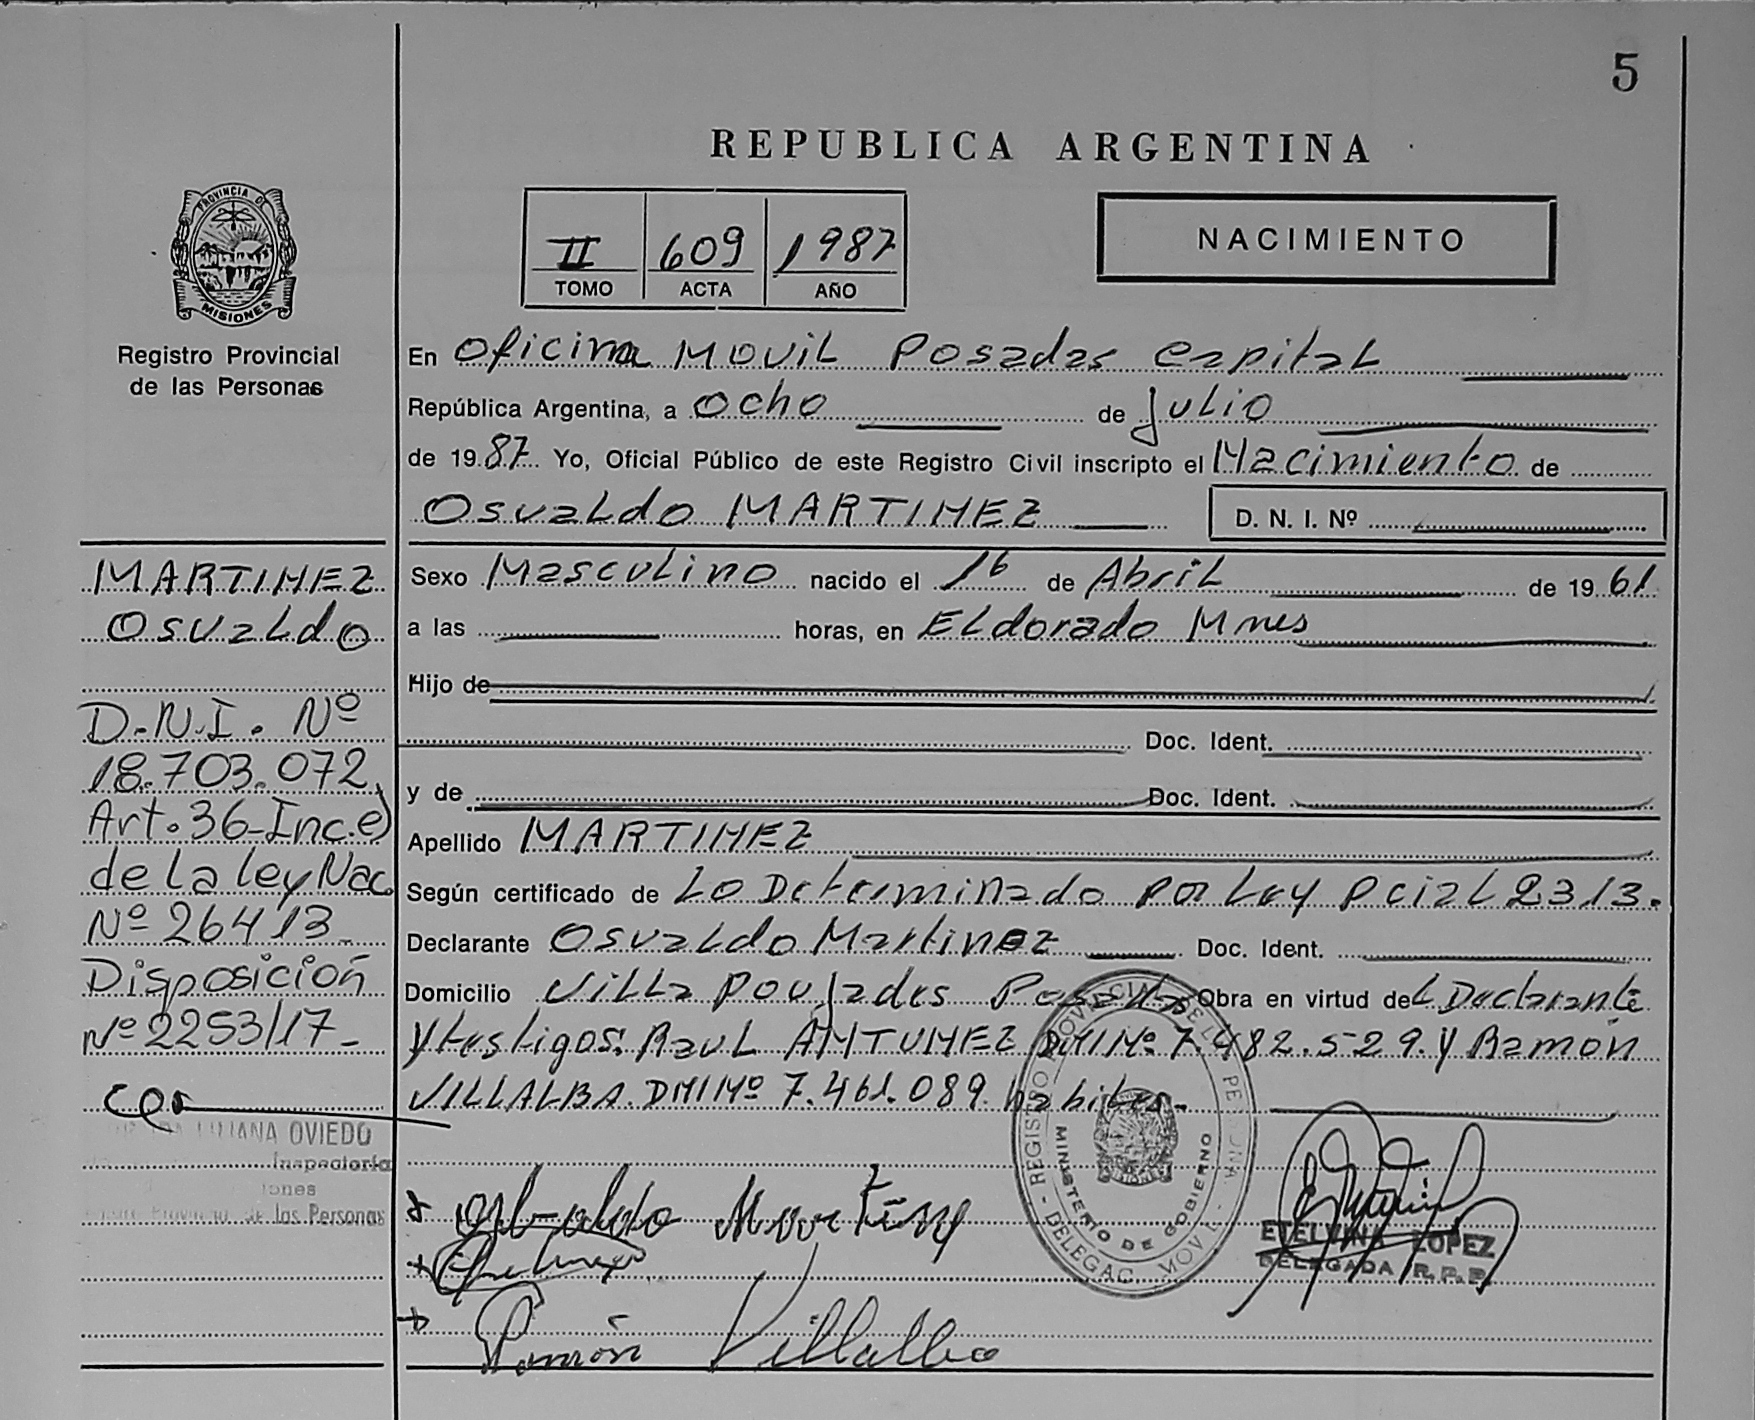 5
REPUBLICA ARGENTINA
PROVINCIA DE
MISIONES
Registro Provincial
de las Personas
II 609 1987
TOMO ACTA AÑO
NACIMIENTO
En Oficina Movil Posadas Capital
República Argentina, a Ocho de Julio
de 1987 Yo, Oficial Público de este Registro Civil inscripto el Nacimiento de
Osvaldo MARTINEZ D. N. I. Nº
MARTINEZ
Osvaldo
D.N.I. Nº
18.703.072,
Art. 36-Inc. e)
de la ley Nac.
Nº 26413-
Disposición
Nº 2253/17-
LILIANA OVIEDO
Inspectoría
de las Personas
Sexo Masculino nacido el 16 de Abril de 1961
a las horas, en Eldorado Mnes
Hijo de
Doc. Ident.
y de Doc. Ident.
Apellido MARTINEZ
Según certificado de Lo Determinado por Ley Pcial 2313.
Declarante Osvaldo Martinez Doc. Ident.
Domicilio Villa Poujades Posadas Obra en virtud del Declarante
y testigos: Raul ANTUNEZ DNI Nº 7.482.529. y Ramón
VILLALBA. DNI Nº 7.461.089. habiles.-
REGISTRO PROVINCIAL DE L PERSONA
MINISTERIO DE GOBIERNO
DELEGAC. MOVIL
Osbaldo Martinez
Ramón Villalba
ETELVINA LOPEZ
DELEGADA R.P.P.